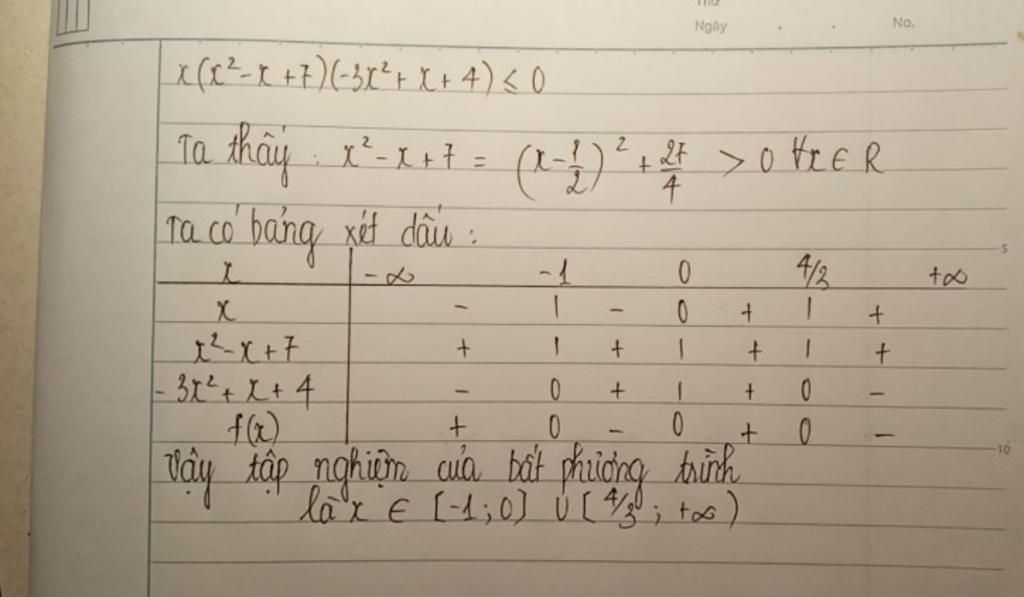 Thứ
Ngày . . No.
x(x²-x+7)(-3x²+x+4) ≤ 0
Ta thấy: x²-x+7 = (x-1/2)² + 27/4 > 0 ∀x∈R
Ta có bảng xét dấu:
x -∞ -1 0 4/3 +∞
x - | - 0 + | +
x²-x+7 + | + | + | +
-3x²+x+4 - 0 + | + 0 -
f(x) + 0 - 0 + 0 -
Vậy tập nghiệm của bất phương trình
là x ∈ [-1;0] ∪ [4/3; +∞)
5
10